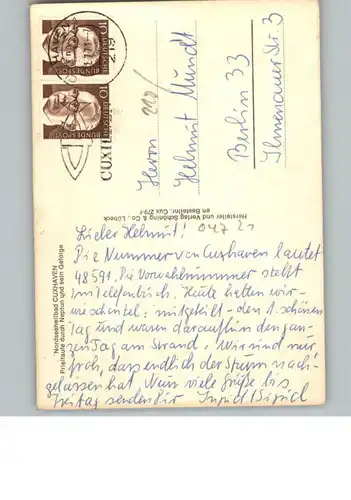 10
DEUTSCHE
BUNDESPOST
10
DEUTSCHE
BUNDESPOST
CUXH
210/
Herrn
Helmut Mundt
Berlin 33
Ilmenauer Str. 3
Hersteller und Verlag Schöning & Co., Lübeck
en Bestellnr. Cux 279-f
Nordseeheilbad CUXHAVEN
Prieltaufe durch Neptun und sein Gefolge
Lieber Helmut! 047 21
Die Nummer von Cuxhaven lautet
48591. Die Vorwahlnummer steht
im Telefonbuch. Heute hatten wir -
wie schon tel. mitgeteilt - den 1. schönen
Tag und waren daraufhin den gan-
zen Tag am Strand. Wir sind nur
froh, dass endlich der Sturm nach-
gelassen hat. Nun viele Grüße bis
Freitag senden Dir Ingrid